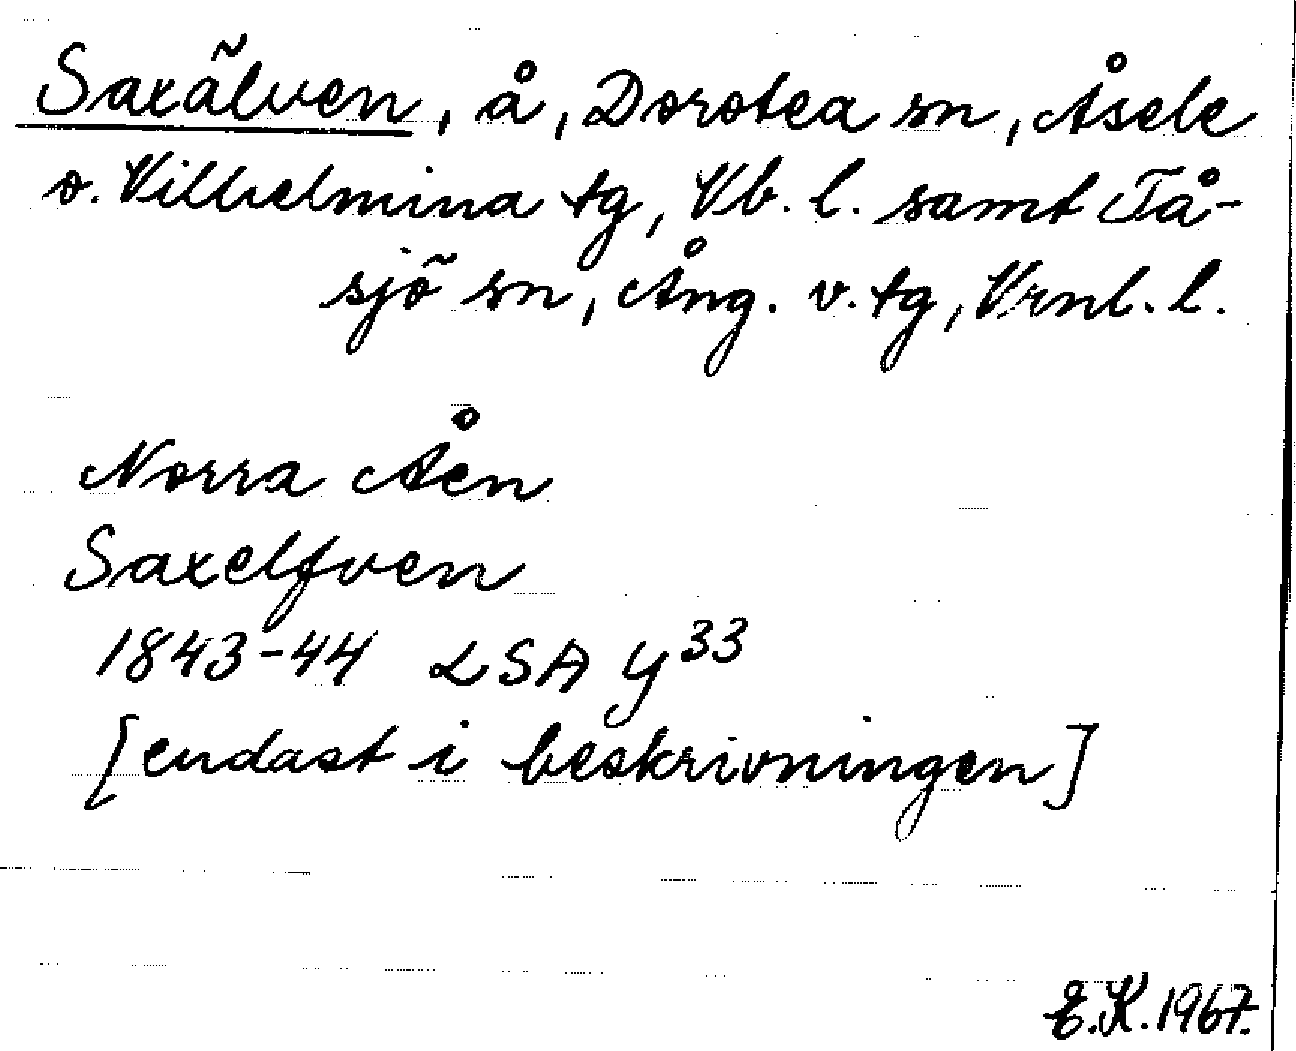 Saxälven, å, Dorotea sn, Åsele
o. Vilhelmina tg, Vb. l. samt Tå-
sjö sn, Ång. v. tg, Vrnl. l.
Norra Åen
Saxelfven
1843-44 LSA Y³³
[endast i beskrivningen]
E.K. 1967.